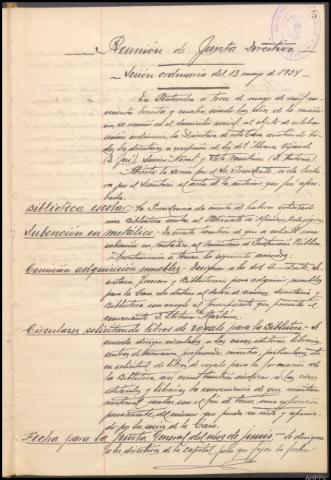 5
Reunión de Junta Directiva
Sesión ordinaria del 13 mayo de 1934
En Pontevedra a trece de mayo de mil no-
vecientos treinta y cuatro, siendo las de la maña-
na, se reunió en el domicilio social, al objeto de celebrar
sesión ordinaria, la Directiva de esta Casa, asistiendo to-
dos los directivos, a excepción de los Sres. Álvarez
(D. José), y (D. Antonio).
Abierta la sesión por el Sr. Presidente, es da lectu-
ra por el Secretario al acta de la anterior, que fué apro-
bada.
Biblioteca escolar.- La Presidencia da cuenta de haber solicitado
una Biblioteca escolar del Patronato de Misiones Pedagógicas
Subención en metálico.- Da cuenta también de que a solicitado una
subvención en metálico al Ministerio de Instrucción Pública
a tomar los siguientes acuerdos:
Comisión adquisición muebles.- Designar a los Sres. Presidente, Se-
cretario, Tesorero y Bibliotecario para adquirir muebles
para la Casa, con destino al Salón de actos, Secretaría y
Biblioteca con arreglo al presupuesto que presenta el
comerciante D. Arturo
Circulares, solicitando libros de regalo para la Biblioteca.- Se
acuerda dirigir circulares a las casas editoras, librerías,
centros de enseñanza, profesorado, maestros, particulares, etc.
en solicitud de libros de regalo para la formación de
la Biblioteca, así como también indicar a las casas
editoriales y librerías, la conveniencia de que remitan
material escolar con el fin de tener una exposición
permanente, del mismo que pueda ser visto y aprecia-
do por los socios de la Casa.
Fecha para la Junta General del mes de junio.- Se designa
a los directivos de la capital para que fijen la fecha
AHPPo